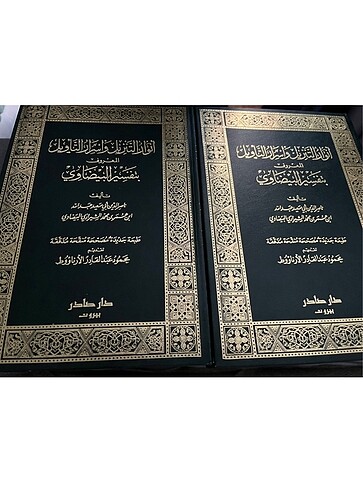 أنوار التنزيل وأسرار التأويل
المعروف
بتفسير البيضاوي
تأليف
ناصر الدين أبي سعيد عبد الله
ابن عمر بن محمد الشيرازي البيضاوي
طبعة جديدة مصححة منقحة
تقديم
محمود عبد القادر الأرناؤوط
دار صادر
بيروت
أنوار التنزيل وأسرار التأويل
المعروف
بتفسير البيضاوي
تأليف
ناصر الدين أبي سعيد عبد الله
ابن عمر بن محمد الشيرازي البيضاوي
طبعة جديدة مصححة منقحة
تقديم
محمود عبد القادر الأرناؤوط
دار صادر
بيروت